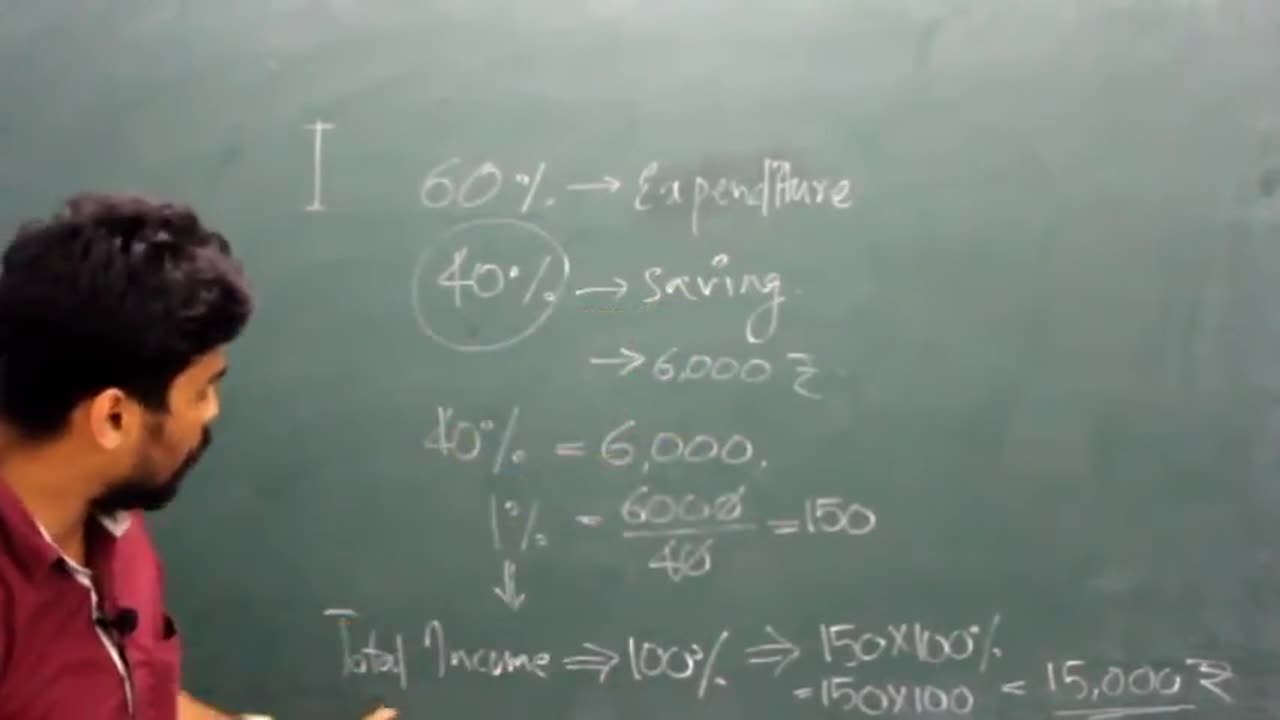 I
60% → Expenditure
40% → Saving.
→ 6,000 ₹
40% = 6,000.
1% = 6000/40 = 150
⇓
Total Income ⇒ 100% ⇒ 150×100%
= 150×100 = 15,000 ₹